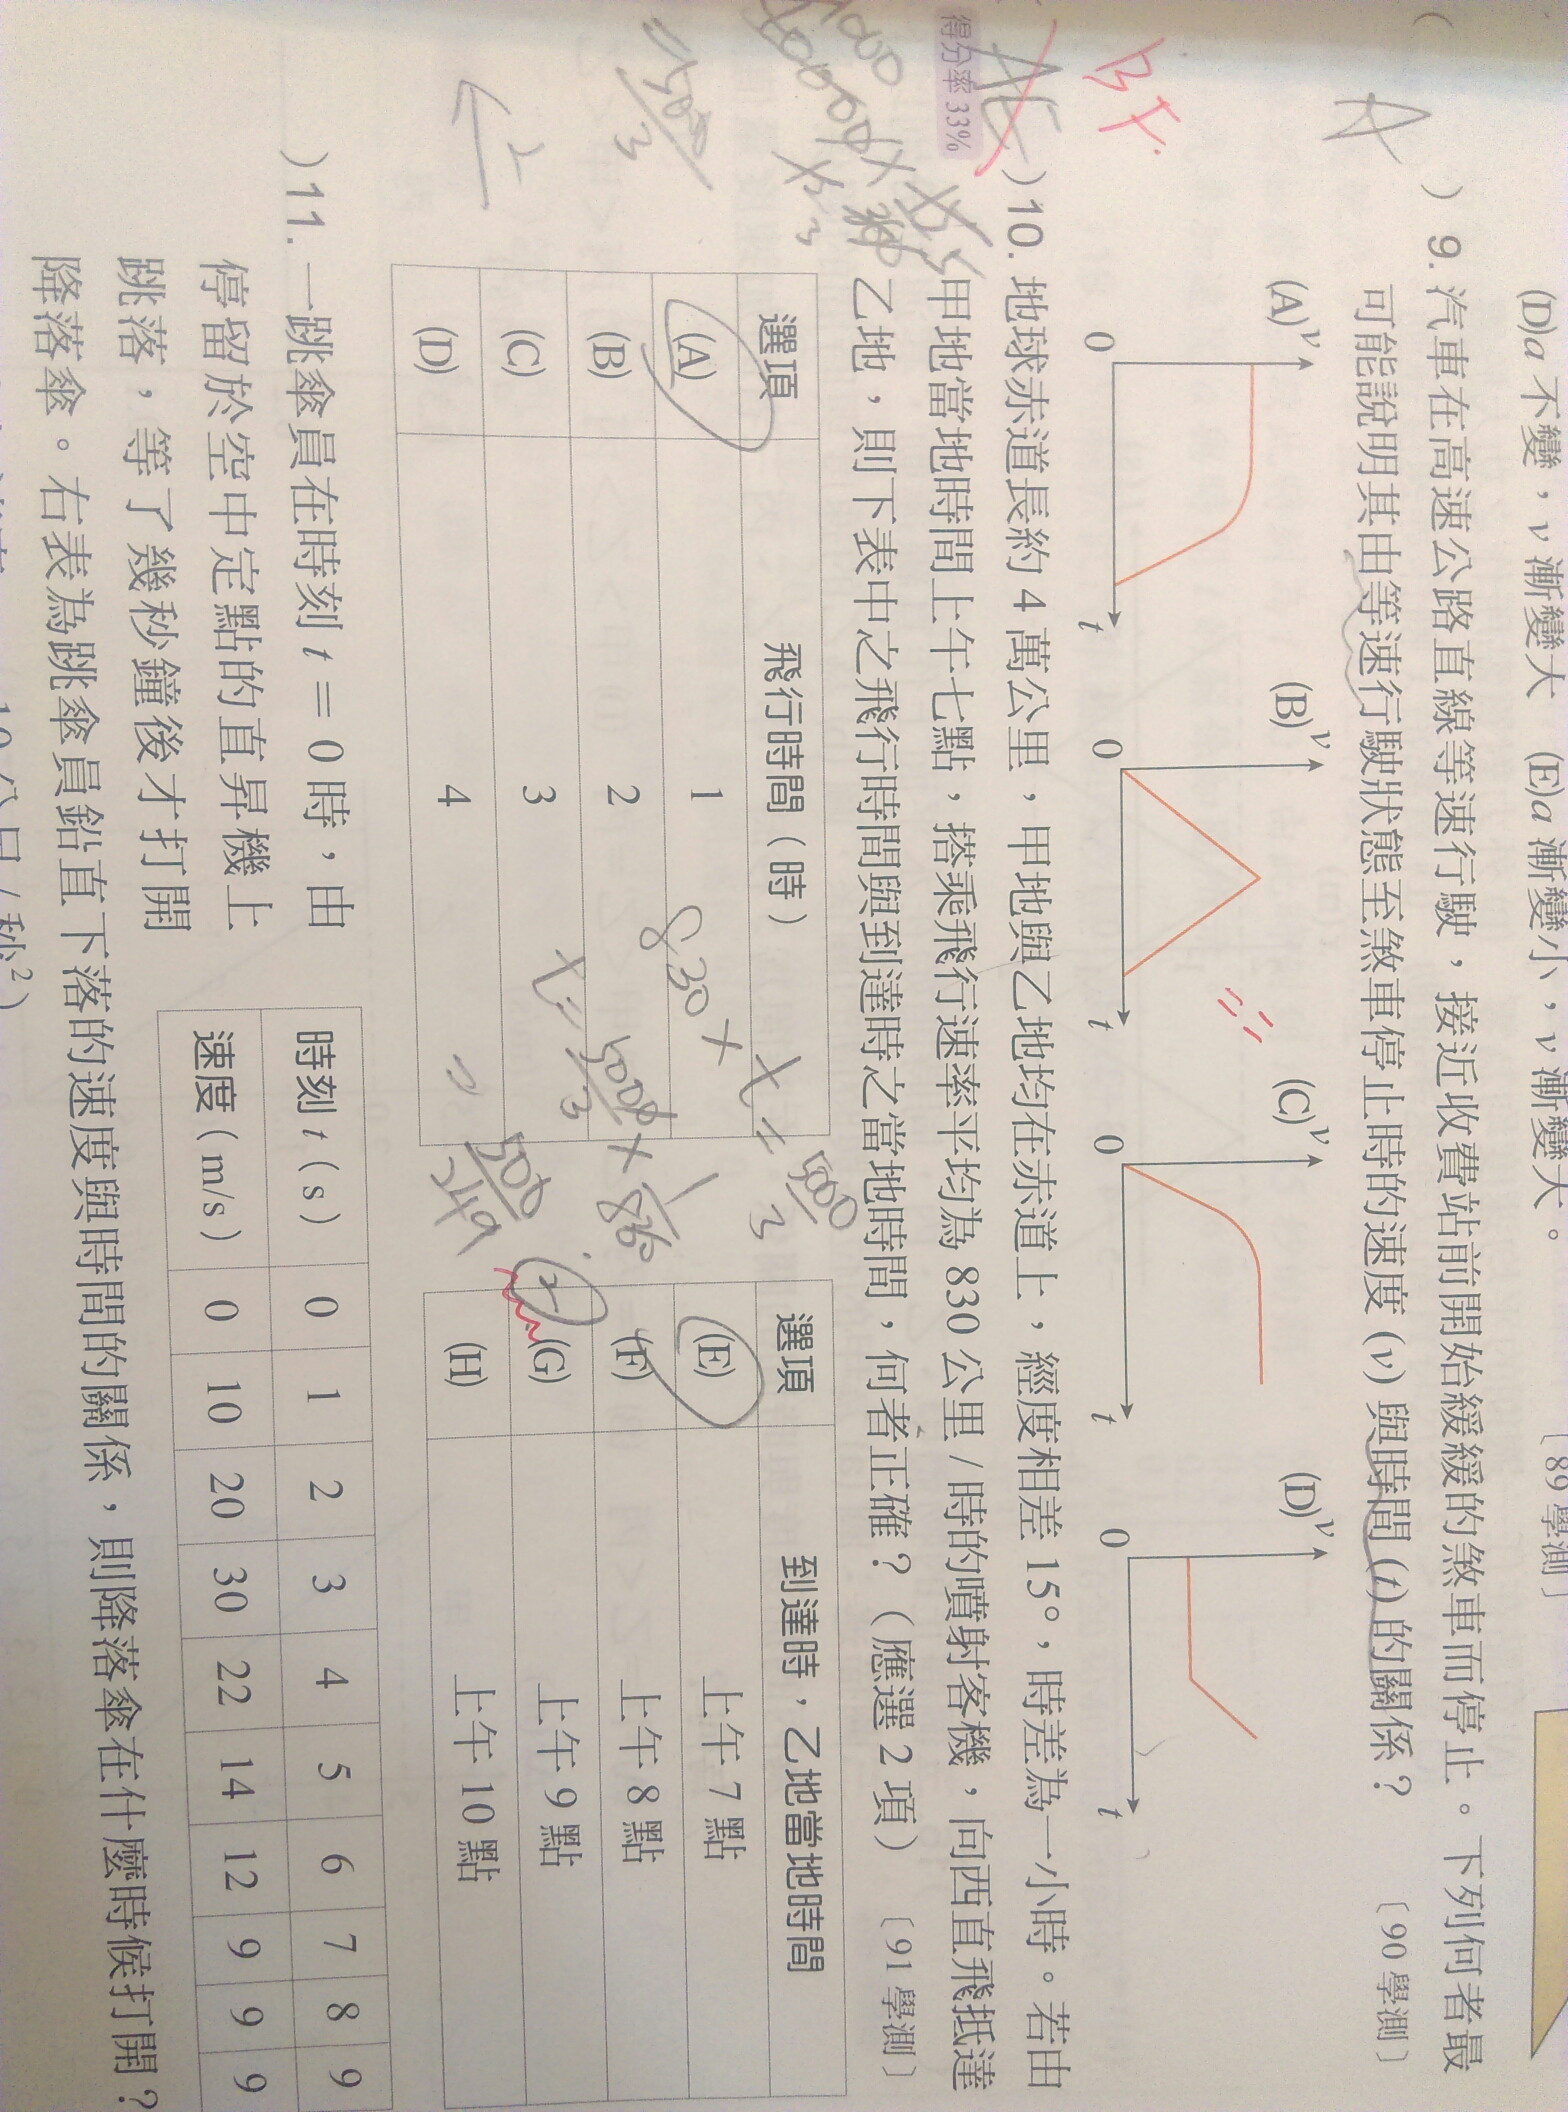 (D)a 不變，v 漸變大　(E)a 漸變小，v 漸變大。
〔89 學測〕
A
) 9. 汽車在高速公路直線等速行駛，接近收費站前開始緩緩的煞車而停止。下列何者最
可能說明其由等速行駛狀態至煞車停止時的速度 (v) 與時間 (t) 的關係？
〔90 學測〕
(A) v
0
t
(B) v
0
t
(C) v
0
t
(D) v
0
t
BF
AE
得分率 33%
) 10. 地球赤道長約 4 萬公里，甲地與乙地均在赤道上，經度相差 15°，時差為一小時。若由
甲地當地時間上午七點，搭乘飛行速率平均為 830 公里 / 時的噴射客機，向西直飛抵達
乙地，則下表中之飛行時間與到達時之當地時間，何者正確？（應選 2 項）
〔91 學測〕
選項 飛行時間（時）
(A) 1
(B) 2
(C) 3
(D) 4
選項 到達時，乙地當地時間
(E) 上午 7 點
(F) 上午 8 點
(G) 上午 9 點
(H) 上午 10 點
830 X
X = 5000/3
X = 5000/3 × 1/830
= 500/249
2
) 11. 一跳傘員在時刻 t = 0 時，由
停留於空中定點的直昇機上
跳落，等了幾秒鐘後才打開
降落傘。右表為跳傘員鉛直下落的速度與時間的關係，則降落傘在什麼時候打開？
時刻 t（s） 0 1 2 3 4 5 6 7 8 9
速度（m/s） 0 10 20 30 22 14 12 9 9 9